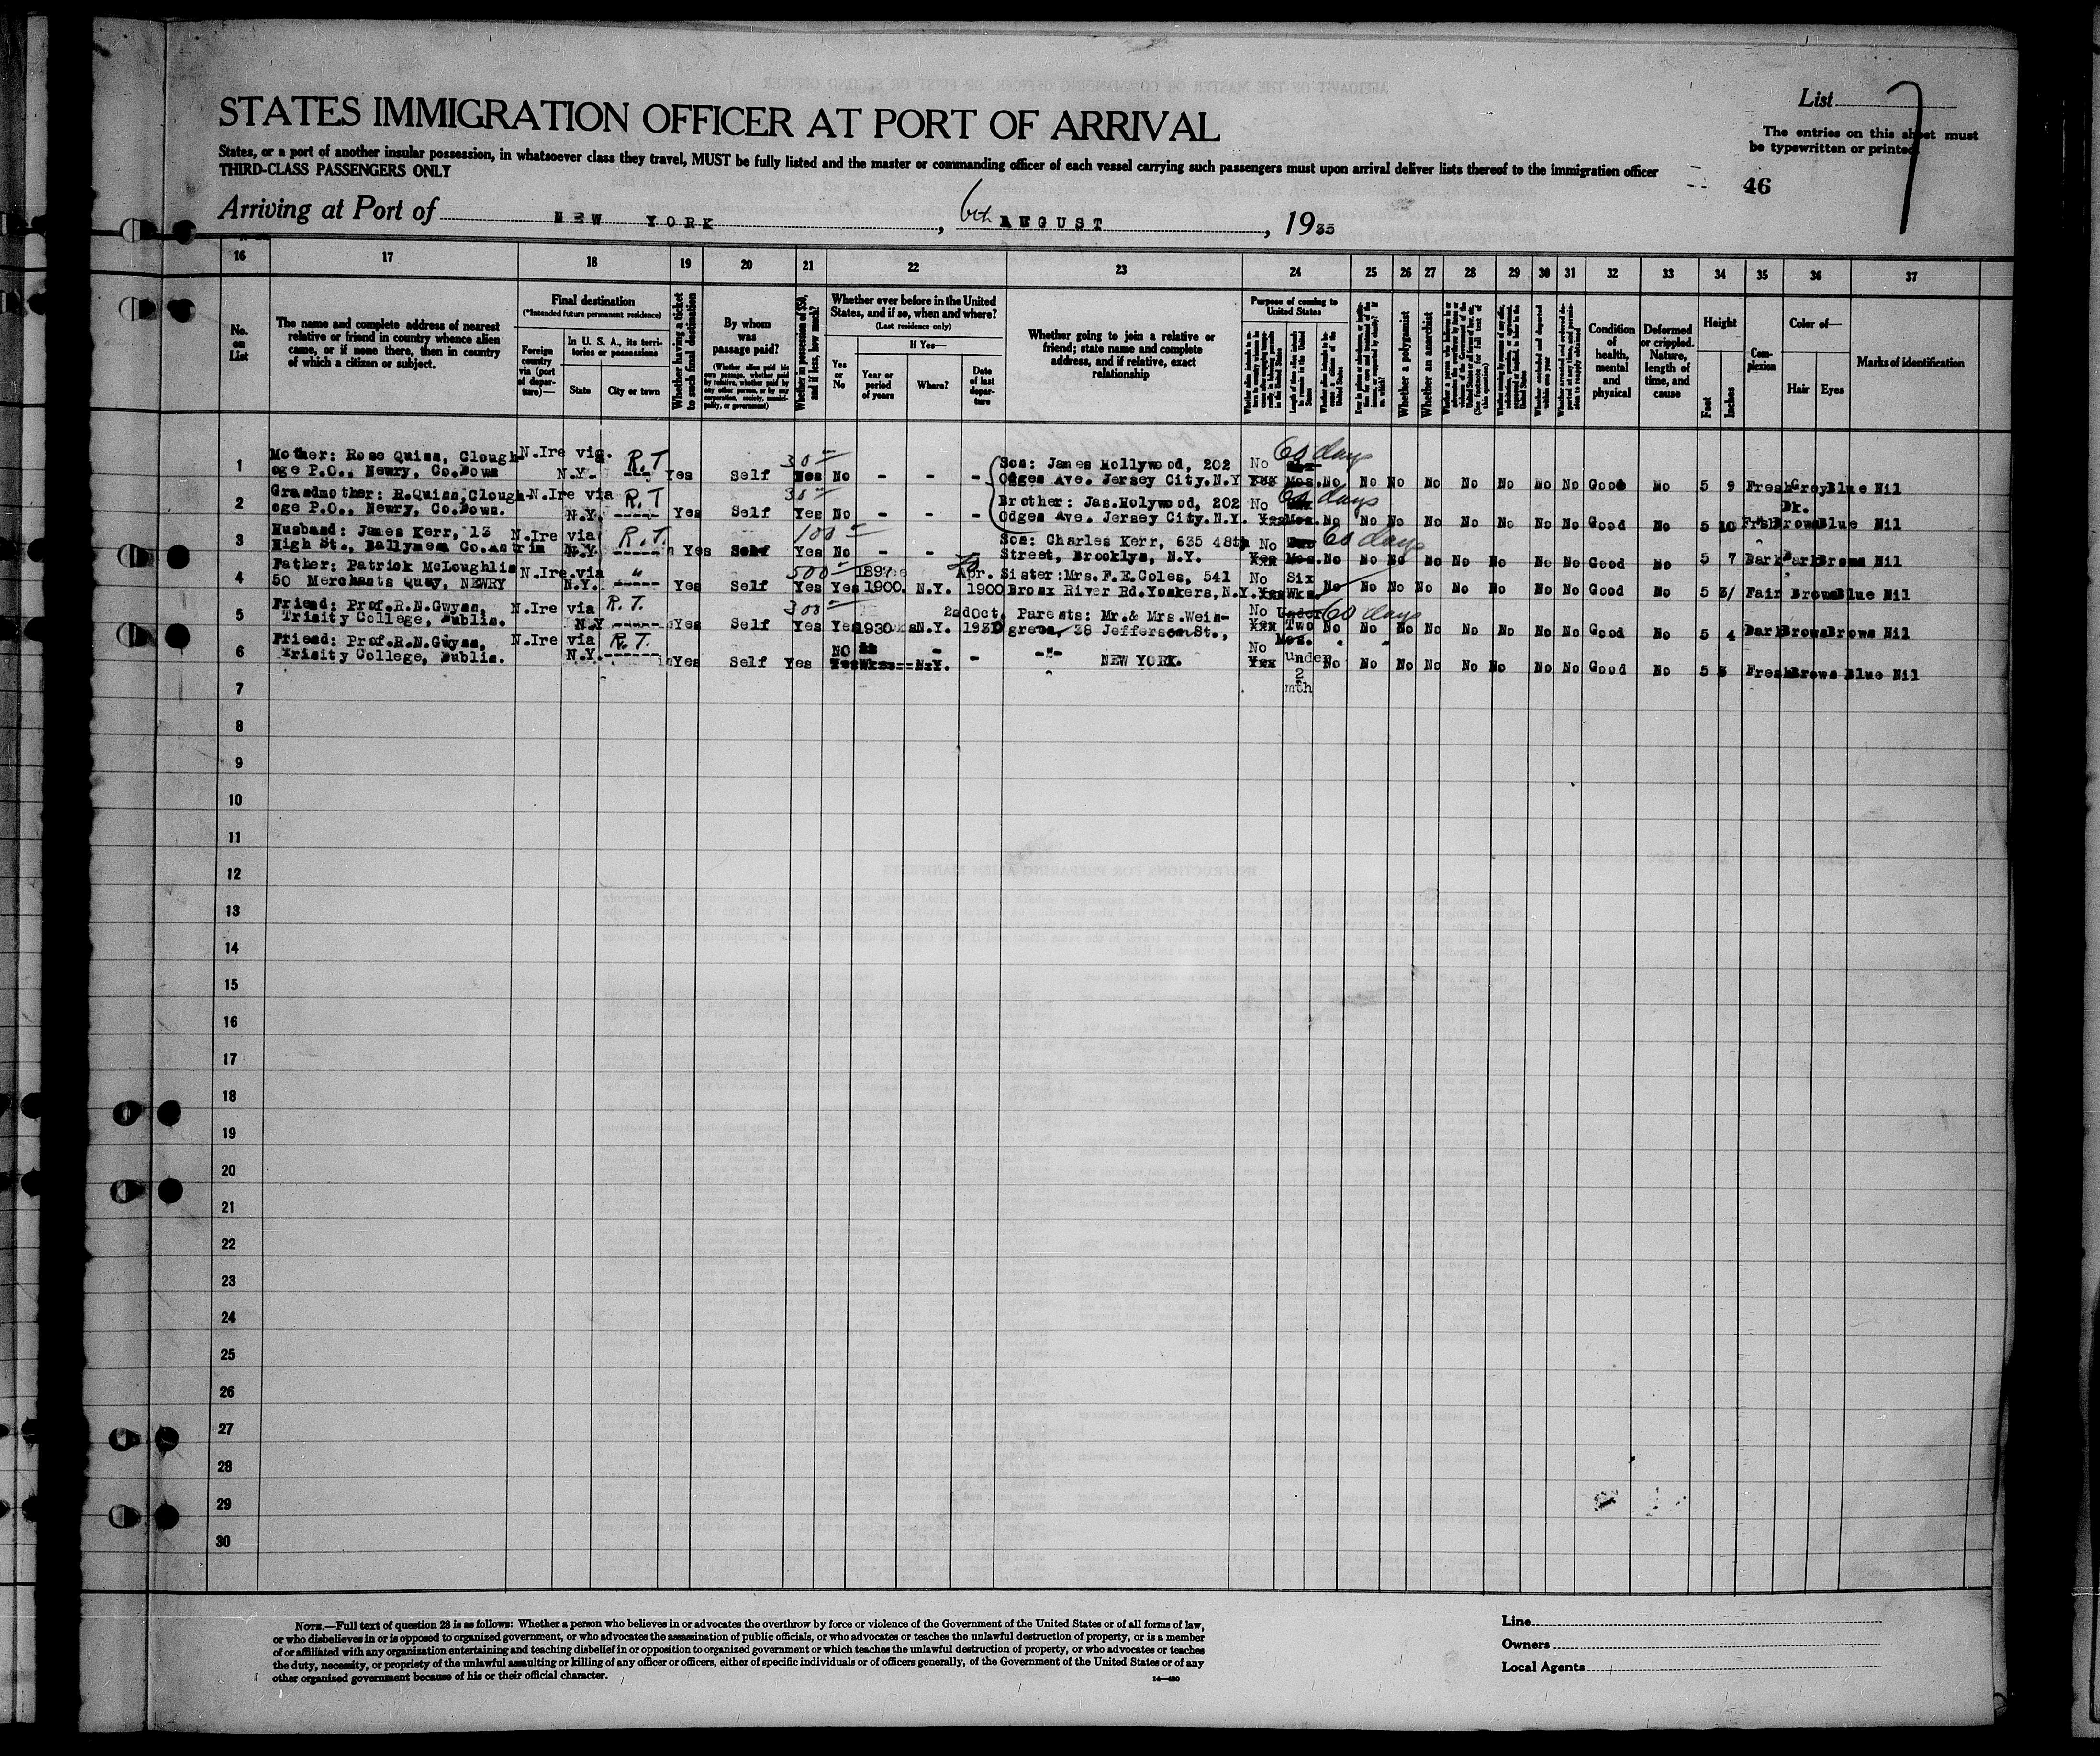 STATES IMMIGRATION OFFICER AT PORT OF ARRIVAL
List 7
The entries on this sheet must
be typewritten or printed.
States, or a port of another insular possession, in whatsoever class they travel, MUST be fully listed and the master or commanding officer of each vessel carrying such passengers must upon arrival deliver lists thereof to the immigration officer
THIRD-CLASS PASSENGERS ONLY
46
Arriving at Port of NEW YORK, 6th AUGUST, 1935
16 17 18 19 20 21 22 23 24 25 26 27 28 29 30 31 32 33 34 35 36 37
No.
on
List
The name and complete address of nearest
relative or friend in country whence alien
came, or if none there, then in country
of which a citizen or subject.
Final destination
(*Intended future permanent residence)
Foreign
country
via (port
of depar-
ture)—
In U. S. A., its terri-
tories or possessions
State
City or town
Whether having a ticket
to such final destination
By whom
was
passage paid?
(Whether alien paid his
own passage, whether paid
by relative, whether paid
by any other person, or by any
corporation, society, munici-
pality, or government)
Whether in possession of $50,
and if less, how much?
Whether ever before in the United
States, and if so, when and where?
(Last residence only)
If Yes—
Yes
or
No
Year or
period
of years
Where?
Date
of last
depar-
ture
Whether going to join a relative or
friend; state name and complete
address, and if relative, exact
relationship
Purpose of coming to
United States
Whether a polygamist
Whether an anarchist
Condition
of
health,
mental
and
physical
Deformed
or crippled.
Nature,
length of
time, and
cause
Height
Feet
Inches
Com-
plexion
Color of—
Hair
Eyes
Marks of identification
1 Mother: Rose Quinn, Clough- N.Ire via R.T 30 Son: James Hollywood, 202 No 60 days
oge P.O., Newry, Co.Down N.Y. Yes Self Yes No - - - Odgen Ave. Jersey City.N.Y Yes Mos. No No No No No No No Good No 5 9 Fresh Grey Blue Nil
2 Grandmother: R.Quinn,Clough- N.Ire via R.T 30 Brother: Jas.Holywood, 202 No 60 days Dk.
oge P.O., Newry, Co.Down. N.Y. ----- Yes Self Yes No - - - Odgen Ave. Jersey City.N.Y. Yes Mos. No No No No No No No No Good No 5 10 Frsh Brown Blue Nil
3 Husband: James Kerr, 13 N.Ire via R.T. 100 Son: Charles Kerr, 635 48th No 60 days
High St., Ballymena Co.Antrim N.Y. ------ Yes Self Yes No - - Street, Brooklyn, N.Y. Yes Mos. No No No No No No No No Good No 5 7 Dark Dark Brown Nil
4 Father: Patrick McLoughlin N.Ire.via " 500 1897 Apr. Sister:Mrs.F.E.Coles, 541 No Six
50 Merchants Quay, NEWRY N.Y. ----- Yes Self Yes Yes 1900. N.Y. 1900 Bronx River Rd.Yonkers,N.Y. Yes Wks. No No No No No No No No Good No 5 3/ Fair Brown Blue Nil
5 Friend: Prof.R.N.Gwynn, N.Ire via R.T. 300 2ndOct. Parents: Mr.& Mrs.Wein- No Under 60 days
Trinity College, Dublin. N.Y ----- Yes Self Yes Yes 1930 N.Y. green, 38 Jefferson St., Yes Two No No No No No No No No Good No 5 4 Dark Brown Brown Nil
Mos.
6 Friend: Prof.R.N.Gwynn, N.Ire via R.T. NO - -"- No
Trinity College, Dublin. N.Y. ------ Yes Self Yes Yes Wks. N.Y. - NEW YORK. Yes under No No No No No No No No Good No 5 3 Fresh Brown Blue Nil
2
mth
7
8
9
10
11
12
13
14
15
16
17
18
19
20
21
22
23
24
25
26
27
28
29
30
NOTE.—Full text of question 28 is as follows: Whether a person who believes in or advocates the overthrow by force or violence of the Government of the United States or of all forms of law,
or who disbelieves in or is opposed to organized government, or who advocates the assassination of public officials, or who advocates or teaches the unlawful destruction of property, or is a member
of or affiliated with any organization entertaining and teaching disbelief in or opposition to organized government or which teaches the unlawful destruction of property, or who advocates or teaches
the duty, necessity, or propriety of the unlawful assaulting or killing of any officer or officers, either of specific individuals or of officers generally, of the Government of the United States or of any
other organized government because of his or their official character.
14—420
Line
Owners
Local Agents